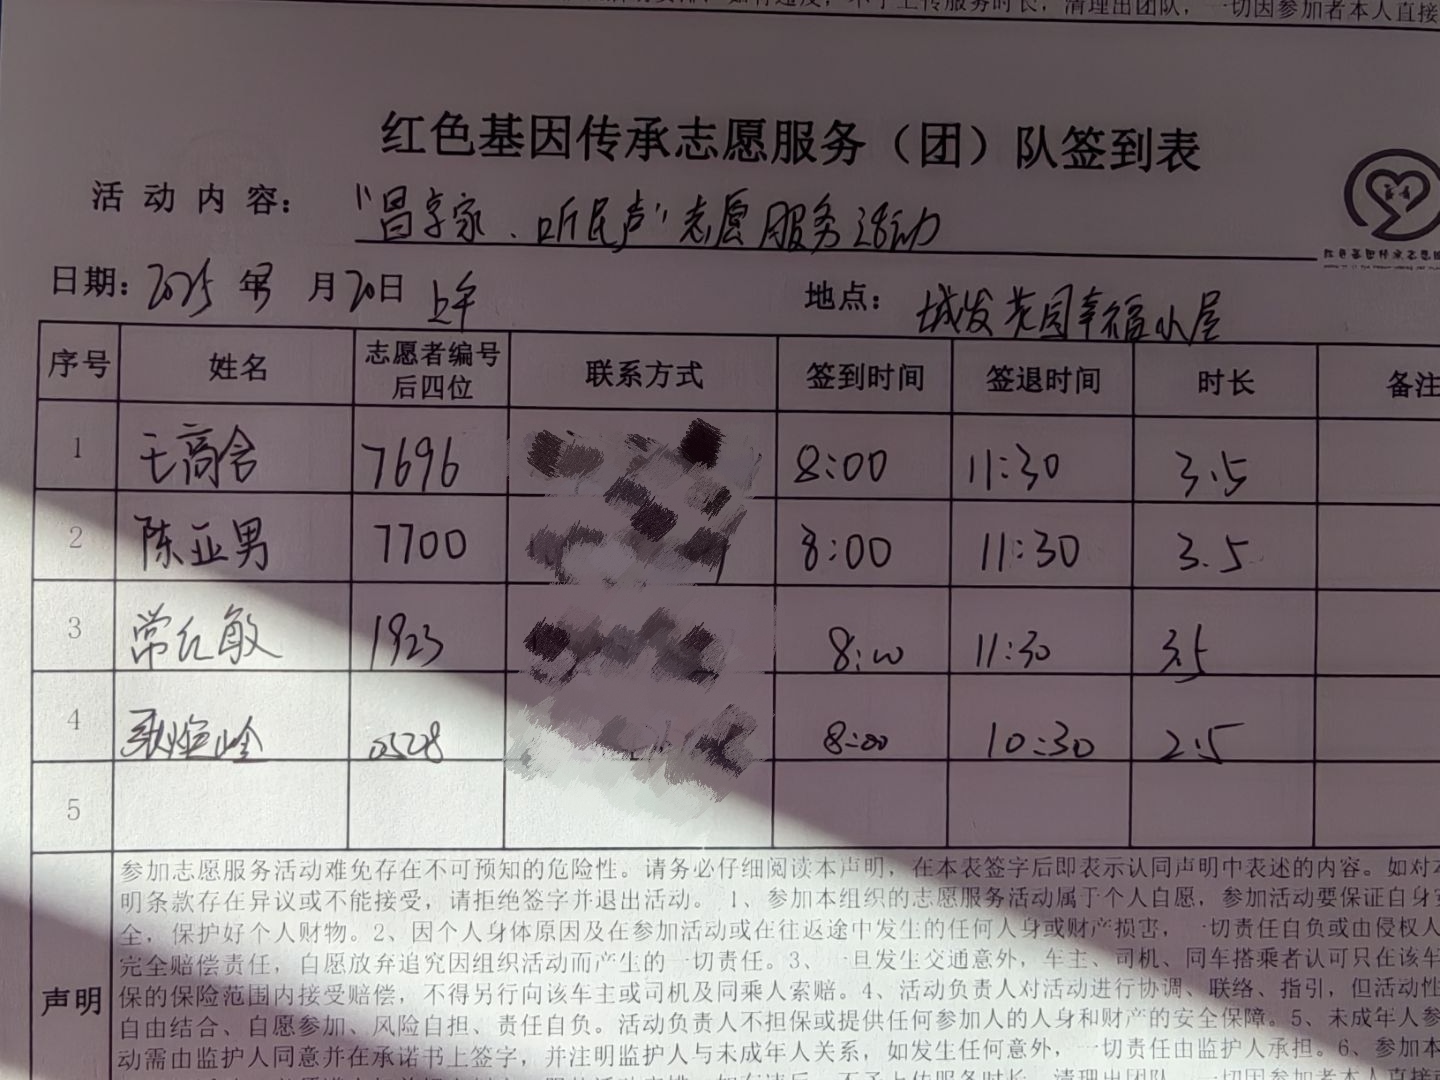 清理出团队，一切因参加者本人直接
红色基因传承志愿服务（团）队签到表
活动内容："昌享家.听民声"志愿服务活动
日期：2025年3月20日上午 地点：城发花园幸福小屋
序号 姓名 志愿者编号后四位 联系方式 签到时间 签退时间 时长 备注
1 王高合 7696 8:00 11:30 3.5
2 陈亚男 7700 8:00 11:30 3.5
3 常红敏 1923 8:00 11:30 3.5
4 0528 8:00 10:30 2.5
5
声明
参加志愿服务活动难免存在不可预知的危险性。请务必仔细阅读本声明，在本表签字后即表示认同声明中表述的内容。如对本
明条款存在异议或不能接受，请拒绝签字并退出活动。1、参加本组织的志愿服务活动属于个人自愿，参加活动要保证自身
全，保护好个人财物。2、因个人身体原因及在参加活动或在往返途中发生的任何人身或财产损害，一切责任自负或由侵权人
完全赔偿责任，自愿放弃追究因组织活动而产生的一切责任。3、一旦发生交通意外，车主、司机、同车搭乘者认可只在该车
保的保险范围内接受赔偿，不得另行向该车主或司机及同乘人索赔。4、活动负责人对活动进行协调、联络、指引，但活动性
自由结合、自愿参加、风险自担、责任自负。活动负责人不担保或提供任何参加人的人身和财产的安全保障。5、未成年人参
动需由监护人同意并在承诺书上签字，并注明监护人与未成年人关系，如发生任何意外，一切责任由监护人承担。6、参加本
不予上传服务时长，清理出团队，一切因参加者本人直接